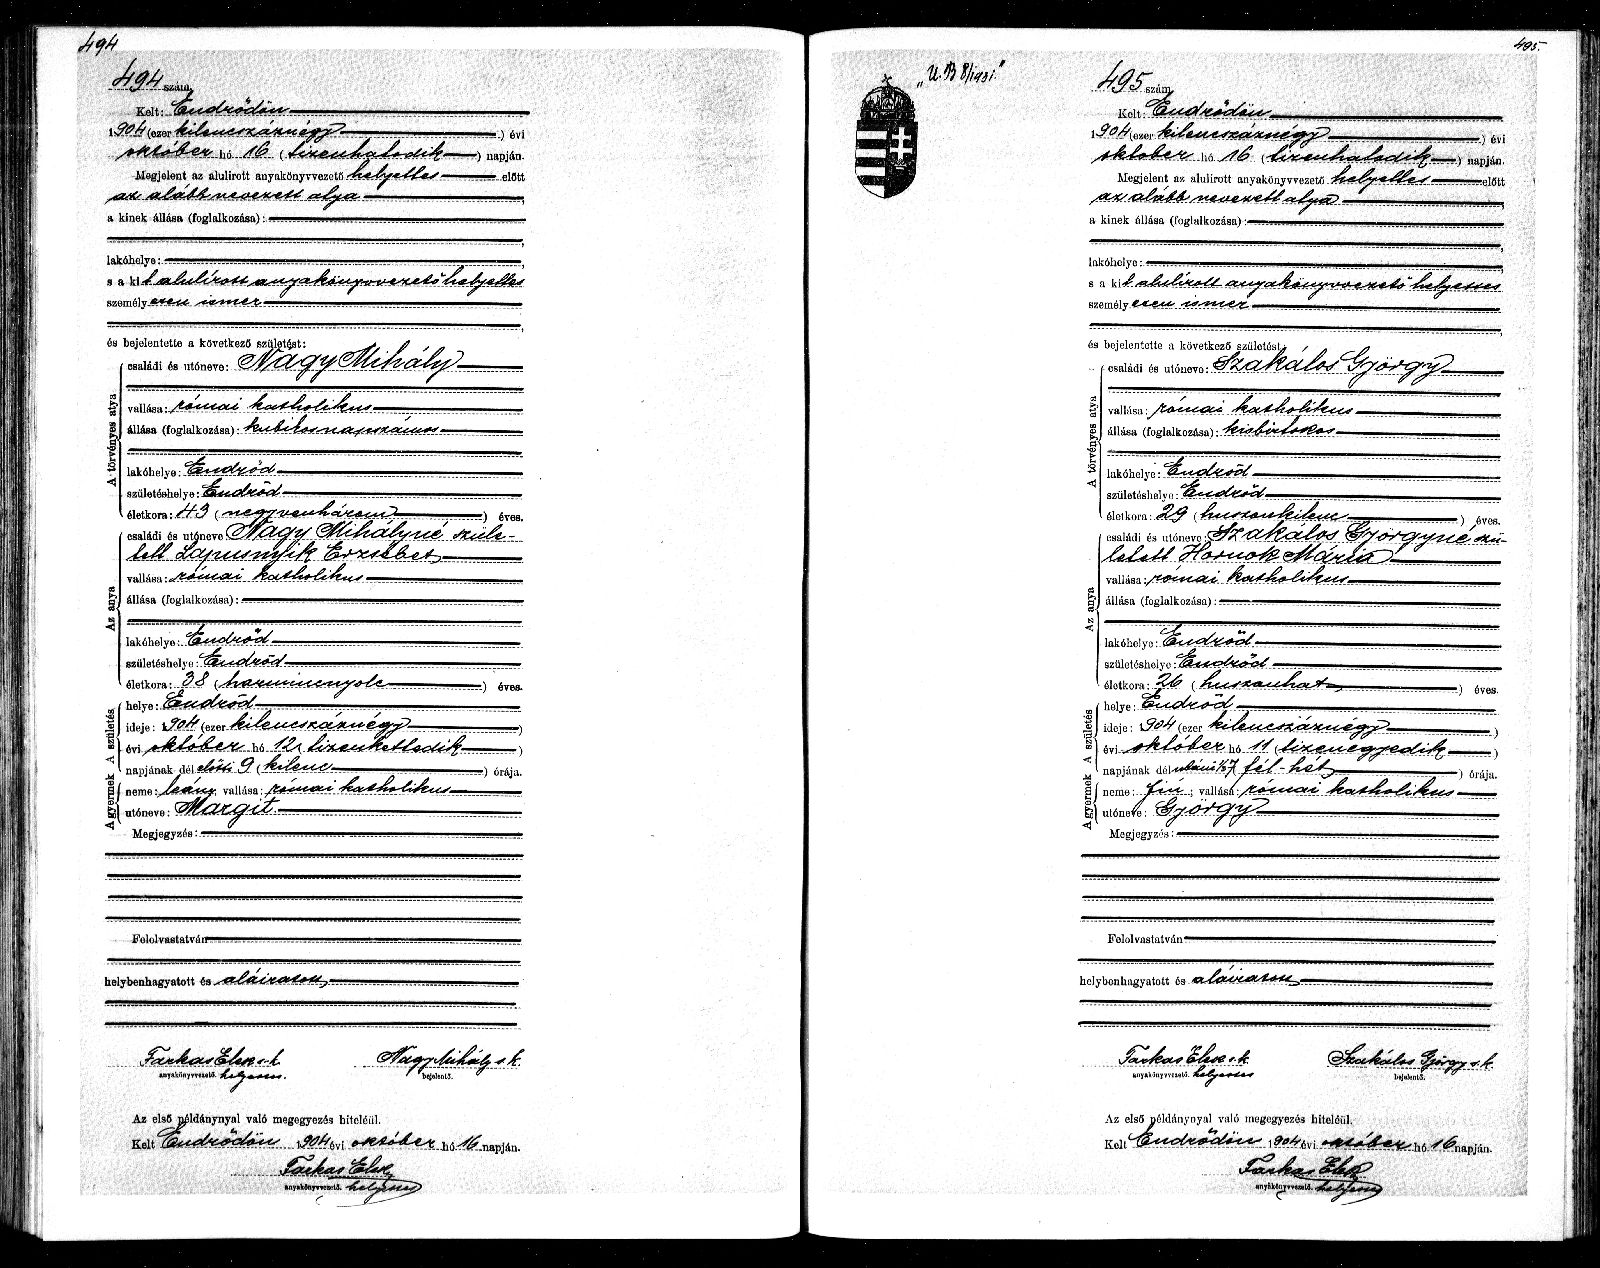 494
494 szám.
Kelt: Endrődön
1904 (ezer kilencszáznégy) évi
október hó 16 (tizenhatodik) napján.
Megjelent az alulirott anyakönyvvezető helyettes előtt
az alább nevezett atya
a kinek állása (foglalkozása):
lakóhelye:
s a kit alulírott anyakönyvvezető helyettes
személyesen ismer
és bejelentette a következő születést:
A törvényes atya
családi és utóneve: Nagy Mihály
vallása: római katholikus
állása (foglalkozása): kubikos napszámos
lakóhelye: Endrőd
születéshelye: Endrőd
életkora: 43 (negyvenhárom) éves.
Az anya
családi és utóneve Nagy Mihályné szüle-
tett Lapusnyik Erzsébet
vallása: római katholikus
állása (foglalkozása):
lakóhelye: Endrőd
születéshelye: Endrőd
életkora: 38 (harmincnyolc) éves.
A születés
helye: Endrőd
ideje: 1904 (ezer kilencszáznégy)
évi október hó 12 (tizenkettedik)
napjának dél előtti 9 (kilenc) órája.
A gyermek
neme: leány, vallása: római katholikus
utóneve: Margit
Megjegyzés:
Felolvastatván
helybenhagyatott és aláiratott,
Farkas Elek s. k. Nagy Mihály s. k.
anyakönyvvezető. helyettes. bejelentő.
Az első példánynyal való megegyezés hiteléül.
Kelt Endrődön 1904 évi október hó 16 napján.
Farkas Elek
anyakönyvvezető. helyettes
495.
„U. B 8/1931."
495 szám.
Kelt: Endrődön
1904 (ezer kilencszáznégy) évi
október hó 16 (tizenhatodik) napján.
Megjelent az alulirott anyakönyvvezető helyettes előtt
az alább nevezett atya
a kinek állása (foglalkozása):
lakóhelye:
s a kit alulírott anyakönyvvezető helyettes
személyesen ismer
és bejelentette a következő születést:
A törvényes atya
családi és utóneve: Szakálos György
vallása: római katholikus
állása (foglalkozása): kisbirtokos
lakóhelye: Endrőd
születéshelye: Endrőd
életkora: 29 (huszonkilenc) éves.
Az anya
családi és utóneve: Szakálos Györgyné szü-
letett Hornok Mária
vallása: római katholikus
állása (foglalkozása):
lakóhelye: Endrőd
születéshelye: Endrőd
életkora: 26 (huszonhat) éves.
A születés
helye: Endrőd
ideje: 1904 (ezer kilencszáznégy)
évi október hó 11 (tizenegyedik)
napjának dél utáni 1/2 7 fél-hét) órája.
A gyermek
neme: fiú; vallása: római katholikus
utóneve: György
Megjegyzés:
Felolvastatván
helybenhagyatott és aláiratott
Farkas Elek s. k. Szakálos György s. k.
anyakönyvvezető. helyettes bejelentő.
Az első példánynyal való megegyezés hiteléül.
Kelt Endrődön 1904 évi október hó 16 napján.
Farkas Elek
anyakönyvvezető. helyettes